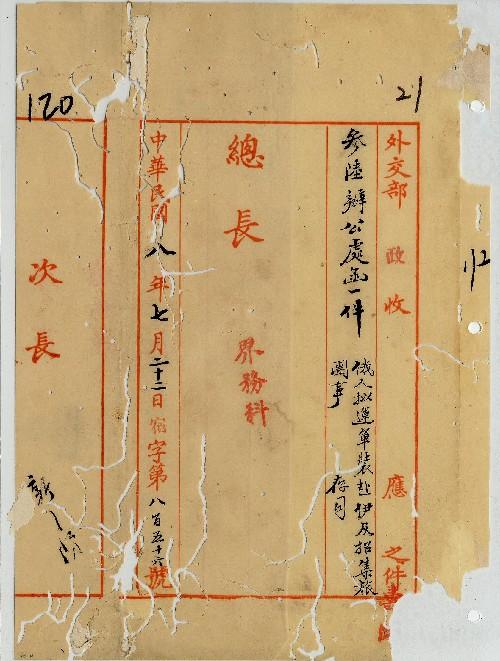 21
120
外交部 政 收 應 之件
參陸辦公處函一件
俄人擬運軍裝赴伊及招集旅
團事 存司
總長 界務科
中華民國八年七月二十二日 字第八百五十六號
次長